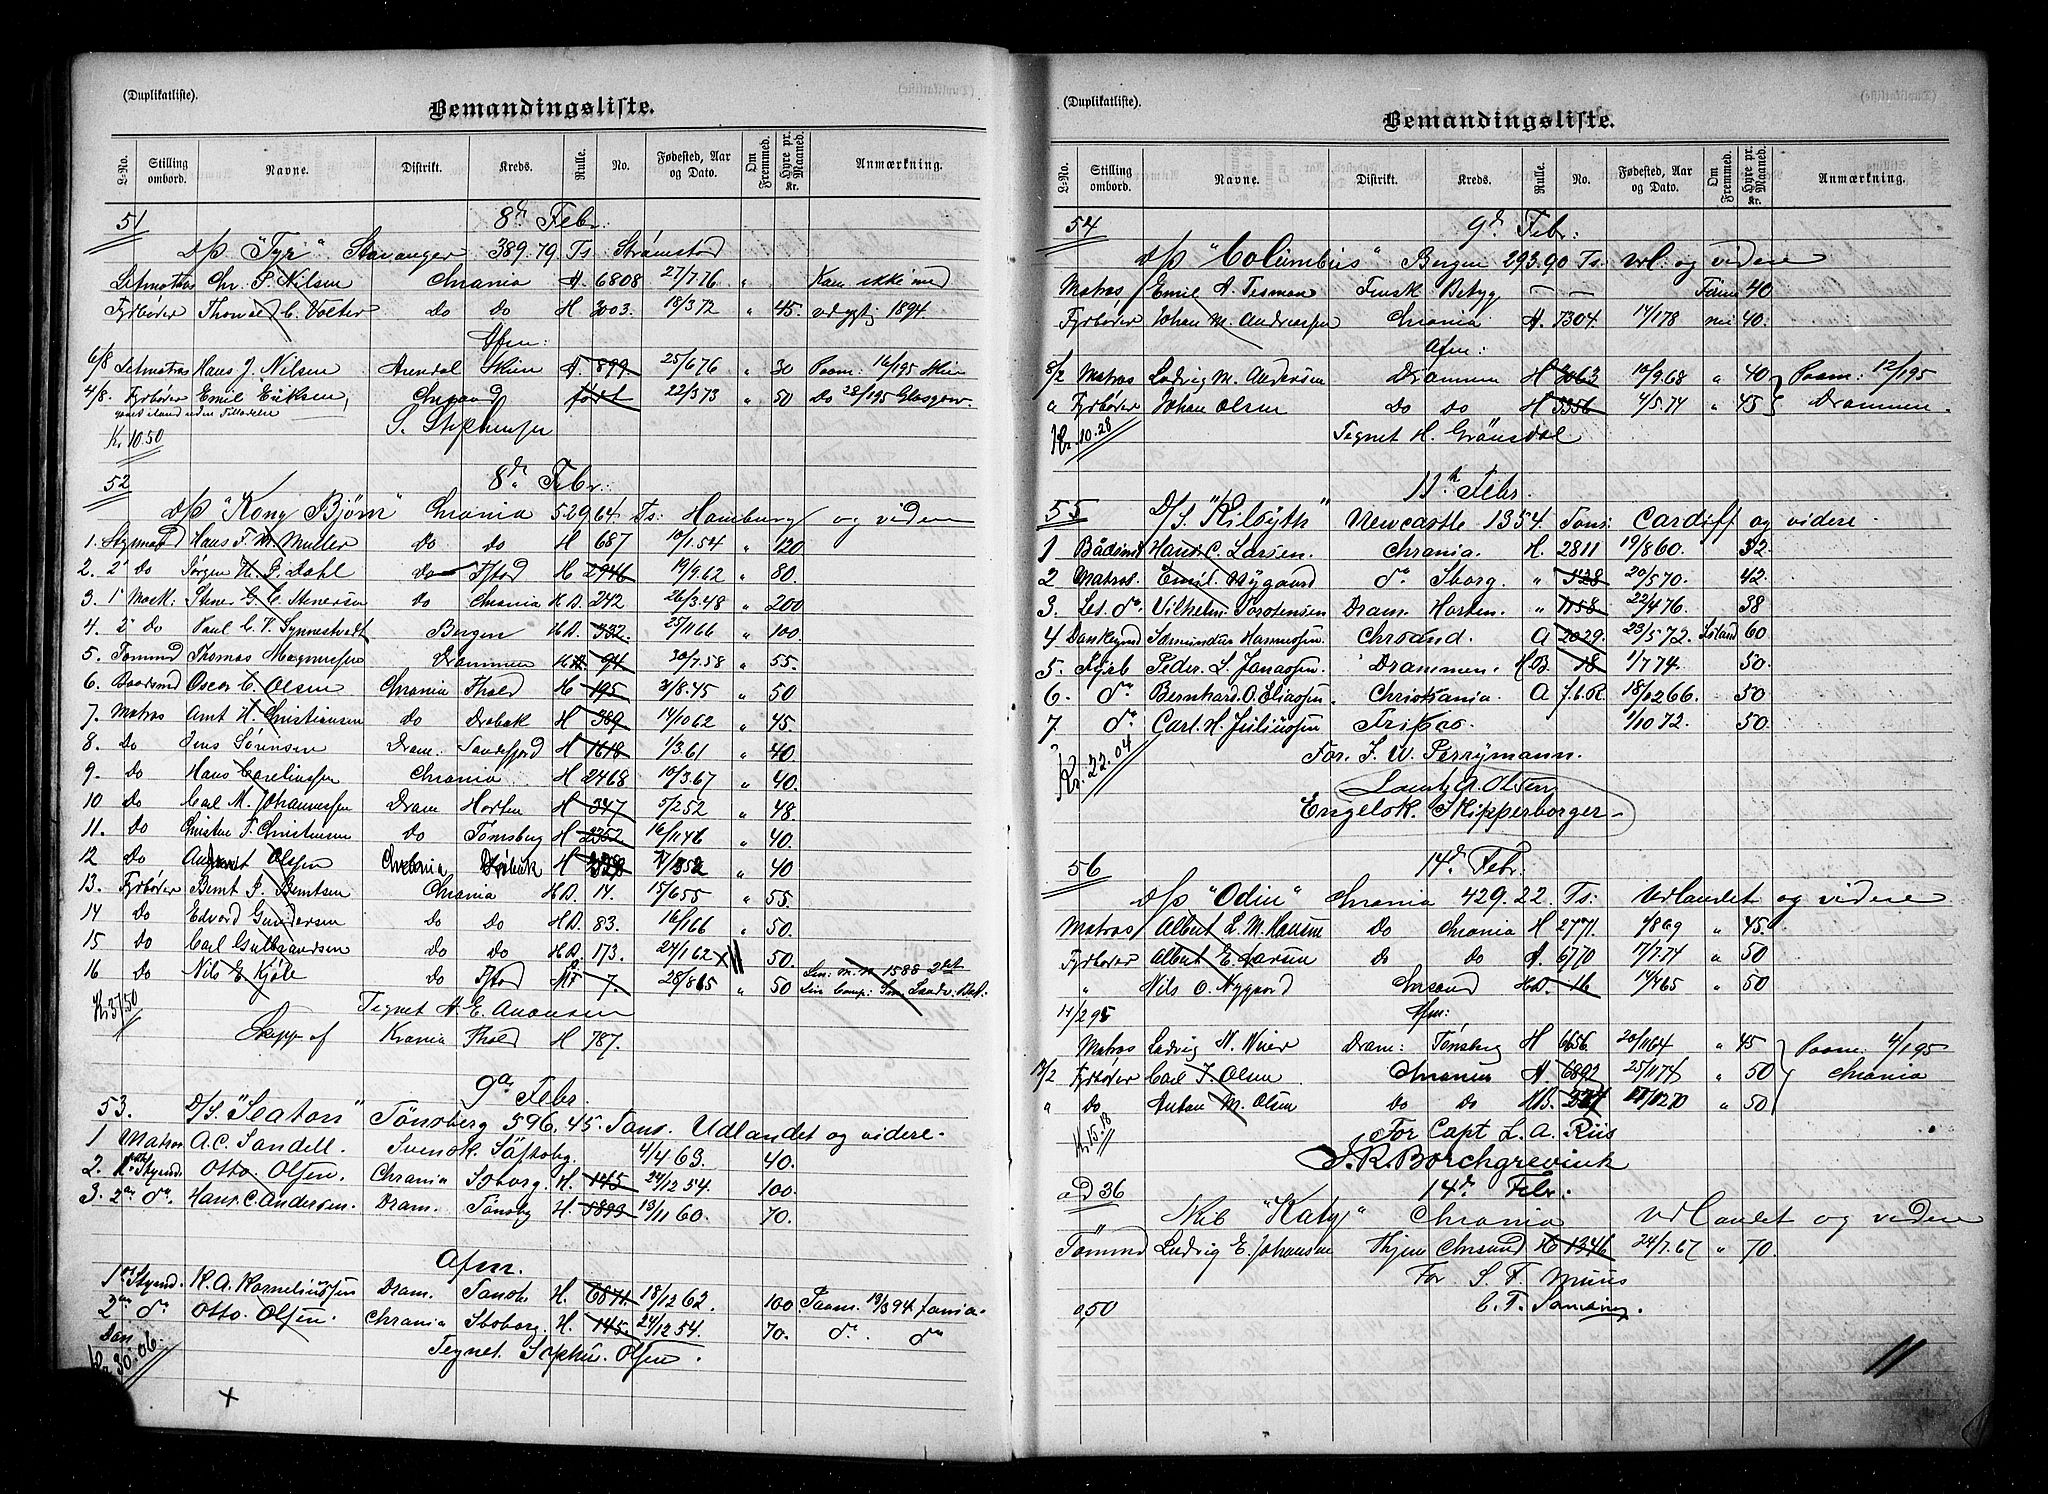 (Duplikatliste).
Bemandingsliste.
L-No. Stilling ombord. Navne. Distrikt. Kreds. Rulle. No. Fødested, Aar og Dato. Om Fremmed. Hyre pr. Maaned. Kr. Anmærkning.
51 8de Febr:
D/S "Tyr" Stavanger 389.79 Ts Strømstad
Letmatros Chr. P. Nilsen Chrania A 6808 27/7.76 " Kom ikke med
Fyrbøter Thomas C. Volter Do Do H 3003. 18/3 72 " 45. udgytj 1894
Afm:
6/8 Letmatros Hans J. Nilsen Arendal Skien A. 899 25/6 76 " 30 Paam: 16/1 95 Skien
4/8. Fyrbøter Emil Eriksen, Chrsand født 22/3 73 " 50 Do 28/1 95 Glasgow.
S. Stephensen
Kr. 10.50
52 8de Febr:
D/S "Kong Bjørn" Chrania 529.64 Ts: Hamburg og videre
1. Styrmand Hans F. M. Muller Do Do H 687 10/1.54 " 120
2. 2 Do Jørgen H. P. Dahl Do Fstad H 2946 19/9.62 " 80.
3. 1 Mask: Stener G. C. Stenersen do Chrania H.D. 242 26/3.48 " 200
4. 2 Do Paul C. V. Synnestvedt Bergen H.D. 332. 25/11 66 " 100.
5. Tømmd Thomas Magnussen Drammen 94 20/7.58 " 55.
6. Baadsmd Oscar C. Olsen Chrania Fhald H 195 31/8.45 " 50
7. Matros Amt H. Christiansen Do Drøbak H 389 14/10 62 " 45.
8. Do Jens Sørensen Dram: Sandefjord H 1618 1/3.61 " 40
9. Do Hans Corneliussen Chrania H 2468 10/3.67 " 40.
10 Do Carl M. Johannessen Dram Horten H 347 5/2 52 " 48
11. Do Christen F. Christensen Do Tønsberg H 2352 16/11 46 " 40.
12 Do Olsen Chrania Drøbak H " 40
13. Fyrbøter Bernt J. Berntsen Chrania H.D. 14. 15/6 55 " 55.
14 Do Edvard Gundersen Do Do H.D. 83. 16/1 66 " 50.
15 Do Carl Gulbrandsen Do Do H.D. 173. 24/1 62 50.
16 Do Nils E. Kjøle Do Fstad 7. 28/8 65 " 50
Kr. 37.50 Tegnet A. E. Anonsen
Skipp af Krania Fhald H 787.
9de Febr.
53. D/S. "Seaton" Tønsberg 596.45 Tons. Udlandet og videre.
1 Matros A. C. Sandell. Svensk. 4/4 63. 40.
2. 1ste Styrmd. Otto. Olsen. Chrania Sborg. H. 145 24/12 54. 100.
3. 2den do. Hans. C. Andersen. Dram. Tønsby H. 5893 13/11 60. 70.
Afm.
1ste Styrmd. K. A. Korneliussen Dram. Tønsb. H. 6871 18/12 62. 100. Paam. 19/3 94
2den do Otto. Olsen. Chrania Sborg. H. 145. 24/12 54. 70. do. do
Tegnet. Sophus. Olsen.
Kr. 30.06.
(Duplikatliste).
Bemandingsliste.
L-No. Stilling ombord. Navne. Distrikt. Kreds. Rulle. No. Fødested, Aar og Dato. Om Fremmed. Hyre pr. Maaned. Kr. Anmærkning.
54 9de Febr:
D/S "Columbus" Bergen 293.90 Ts: Udl. og videre
Matros Emil A. Tesman Finsk Betyg — — 40
Fyrbøter Johan M. Andreassen Chrania A. 7304. 14/1 78 40.
Afm:
8/2 Matros Ludvig M. Andersen Drammen H 3063 10/9.68 " 40 Paam: 12/1 95
" Fyrbøter Johan Olsen Do Do H 5356 4/5.74 " 45 Drammen.
Kr. 10.28 Tegnet H. Grönsdal
11te Febr.
55 D/S. "Kilsyth" Newcastle 1354. Tons: Cardiff og videre.
1 Bådsmd Hans. C. Larsen. Chrania. H. 2811 19/8 60. 52.
2 Matros. Emil. Nygaard do Sborg. " 528 20/5 70. 42.
3. Let. do. Vilhelm. Torstensen Dram. Horten. " 1158 22/4 76 38
4 Donkeymd Sæmundur Hannessen. Chrsand. A 2029. 23/5 72. Island 60
5. Fyrb Peder. L. Jonassen. Drammen. H.B. 18 1/7 74. 50.
6. do Bernhard. O. Eliassen. Christiania. A f.b.R 18/12 66. 50
7 do Carl. H. Juliussen Trikao. 1/10 72. 50.
Kr. 22.04 For. J. W. Perrymann.
Laur. A. Olsen
Engelsk. Skipperborger
56 14de Febr.
D/S "Odin" Chrania 429.22. Ts: Udlandet og videre
Matros Albert L. M. Hansen Do Chrania H 2771. 9/8 69 " 45.
Fyrbøter Albert E. Larsen Do Do A. 6770 17/7.74 " 50
" Nils O. Nygaard Chrsand H.D. 16 14/4 65 " 50
11/2 95 Afm:
Matros Ludvig N. Wiier Dram: Tønsberg H 6656. 20/11 64 " 45 Paam: 4/1 95
12/2 Fyrbøter Carl J. Olsen Chrania A. 6892 25/11 74 " 50 Chrania
" Do Anton M. Olsen Do Do H.B. " 50
Kr. 15.18 For Capt L. A. Riis
S. R. Borchgrevink
ad 36 14de Febr:
Skib "Katy" Chrania Udlandet og videre
Tømmd Ludvig E. Johansen Chrsund H 1346 24/7.67 " 70.
For S. F. Muus
0,50 C. F.
11